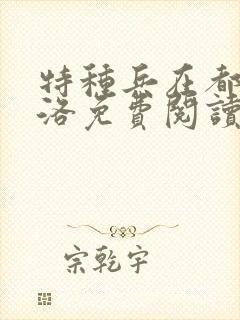 特種兵在都
洛免費閱讀
宗乾宇